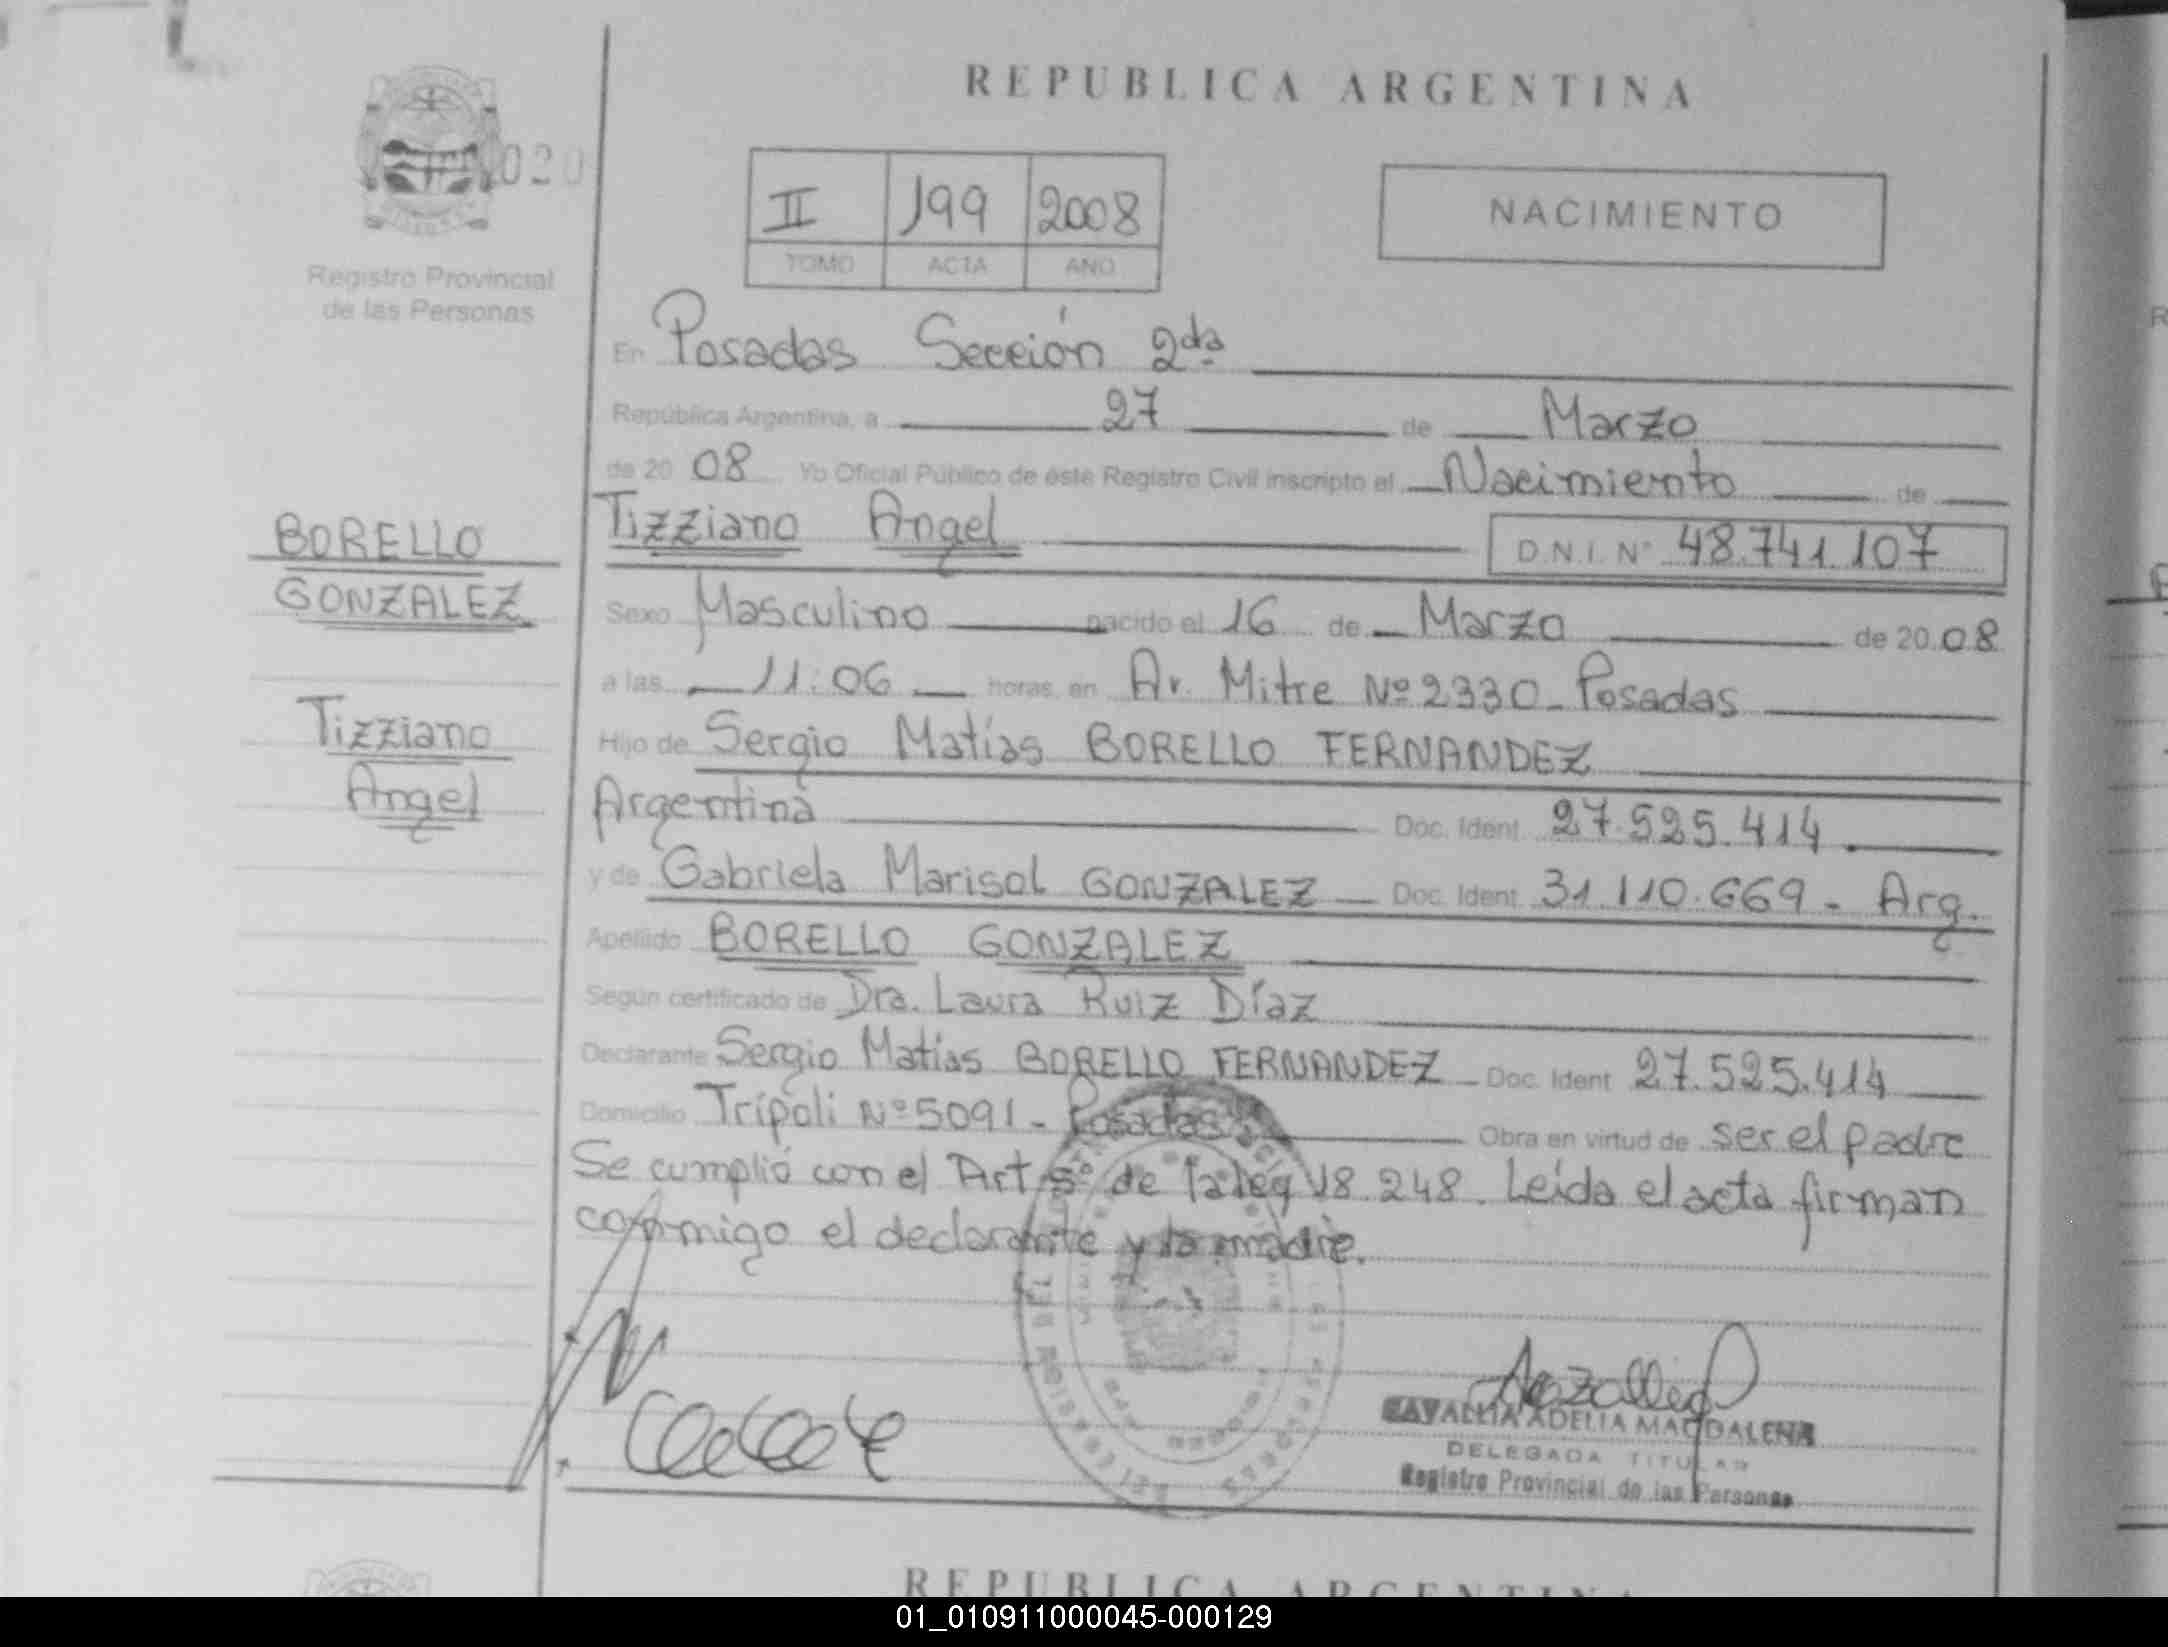 REPUBLICA ARGENTINA
020
Registro Provincial
de las Personas
II 199 2008
TOMO ACTA AÑO
NACIMIENTO
En Posadas Sección 2da
República Argentina, a 27 de Marzo
de 20 08 Yo Oficial Público de éste Registro Civil inscripto el Nacimiento de
Tizziano Angel D.N.I. Nº 48.741.107
BORELLO
GONZALEZ
Tizziano
Angel
Sexo Masculino nacido el 16 de Marzo de 20 08
a las 11:06 horas, en Av. Mitre Nº 2330 - Posadas
Hijo de Sergio Matías BORELLO FERNANDEZ
Argentina Doc. Ident. 27.525.414
y de Gabriela Marisol GONZALEZ - Doc. Ident. 31.110.669 - Arg.
Apellido BORELLO GONZALEZ
Según certificado de Dra. Laura Ruiz Díaz
Declarante Sergio Matías BORELLO FERNANDEZ - Doc. Ident 27.525.414
Domicilio Trípoli Nº 5091 - Posadas Obra en virtud de ser el padre
Se cumplió con el Art 5º de la ley 18.248. Leída el acta firman
conmigo el declarante y la madre.
ADELIA MAGDALENA
DELEGADA TITULAR
Registro Provincial de las Personas
REPUBLICA ARGENTINA
01_010911000045-000129